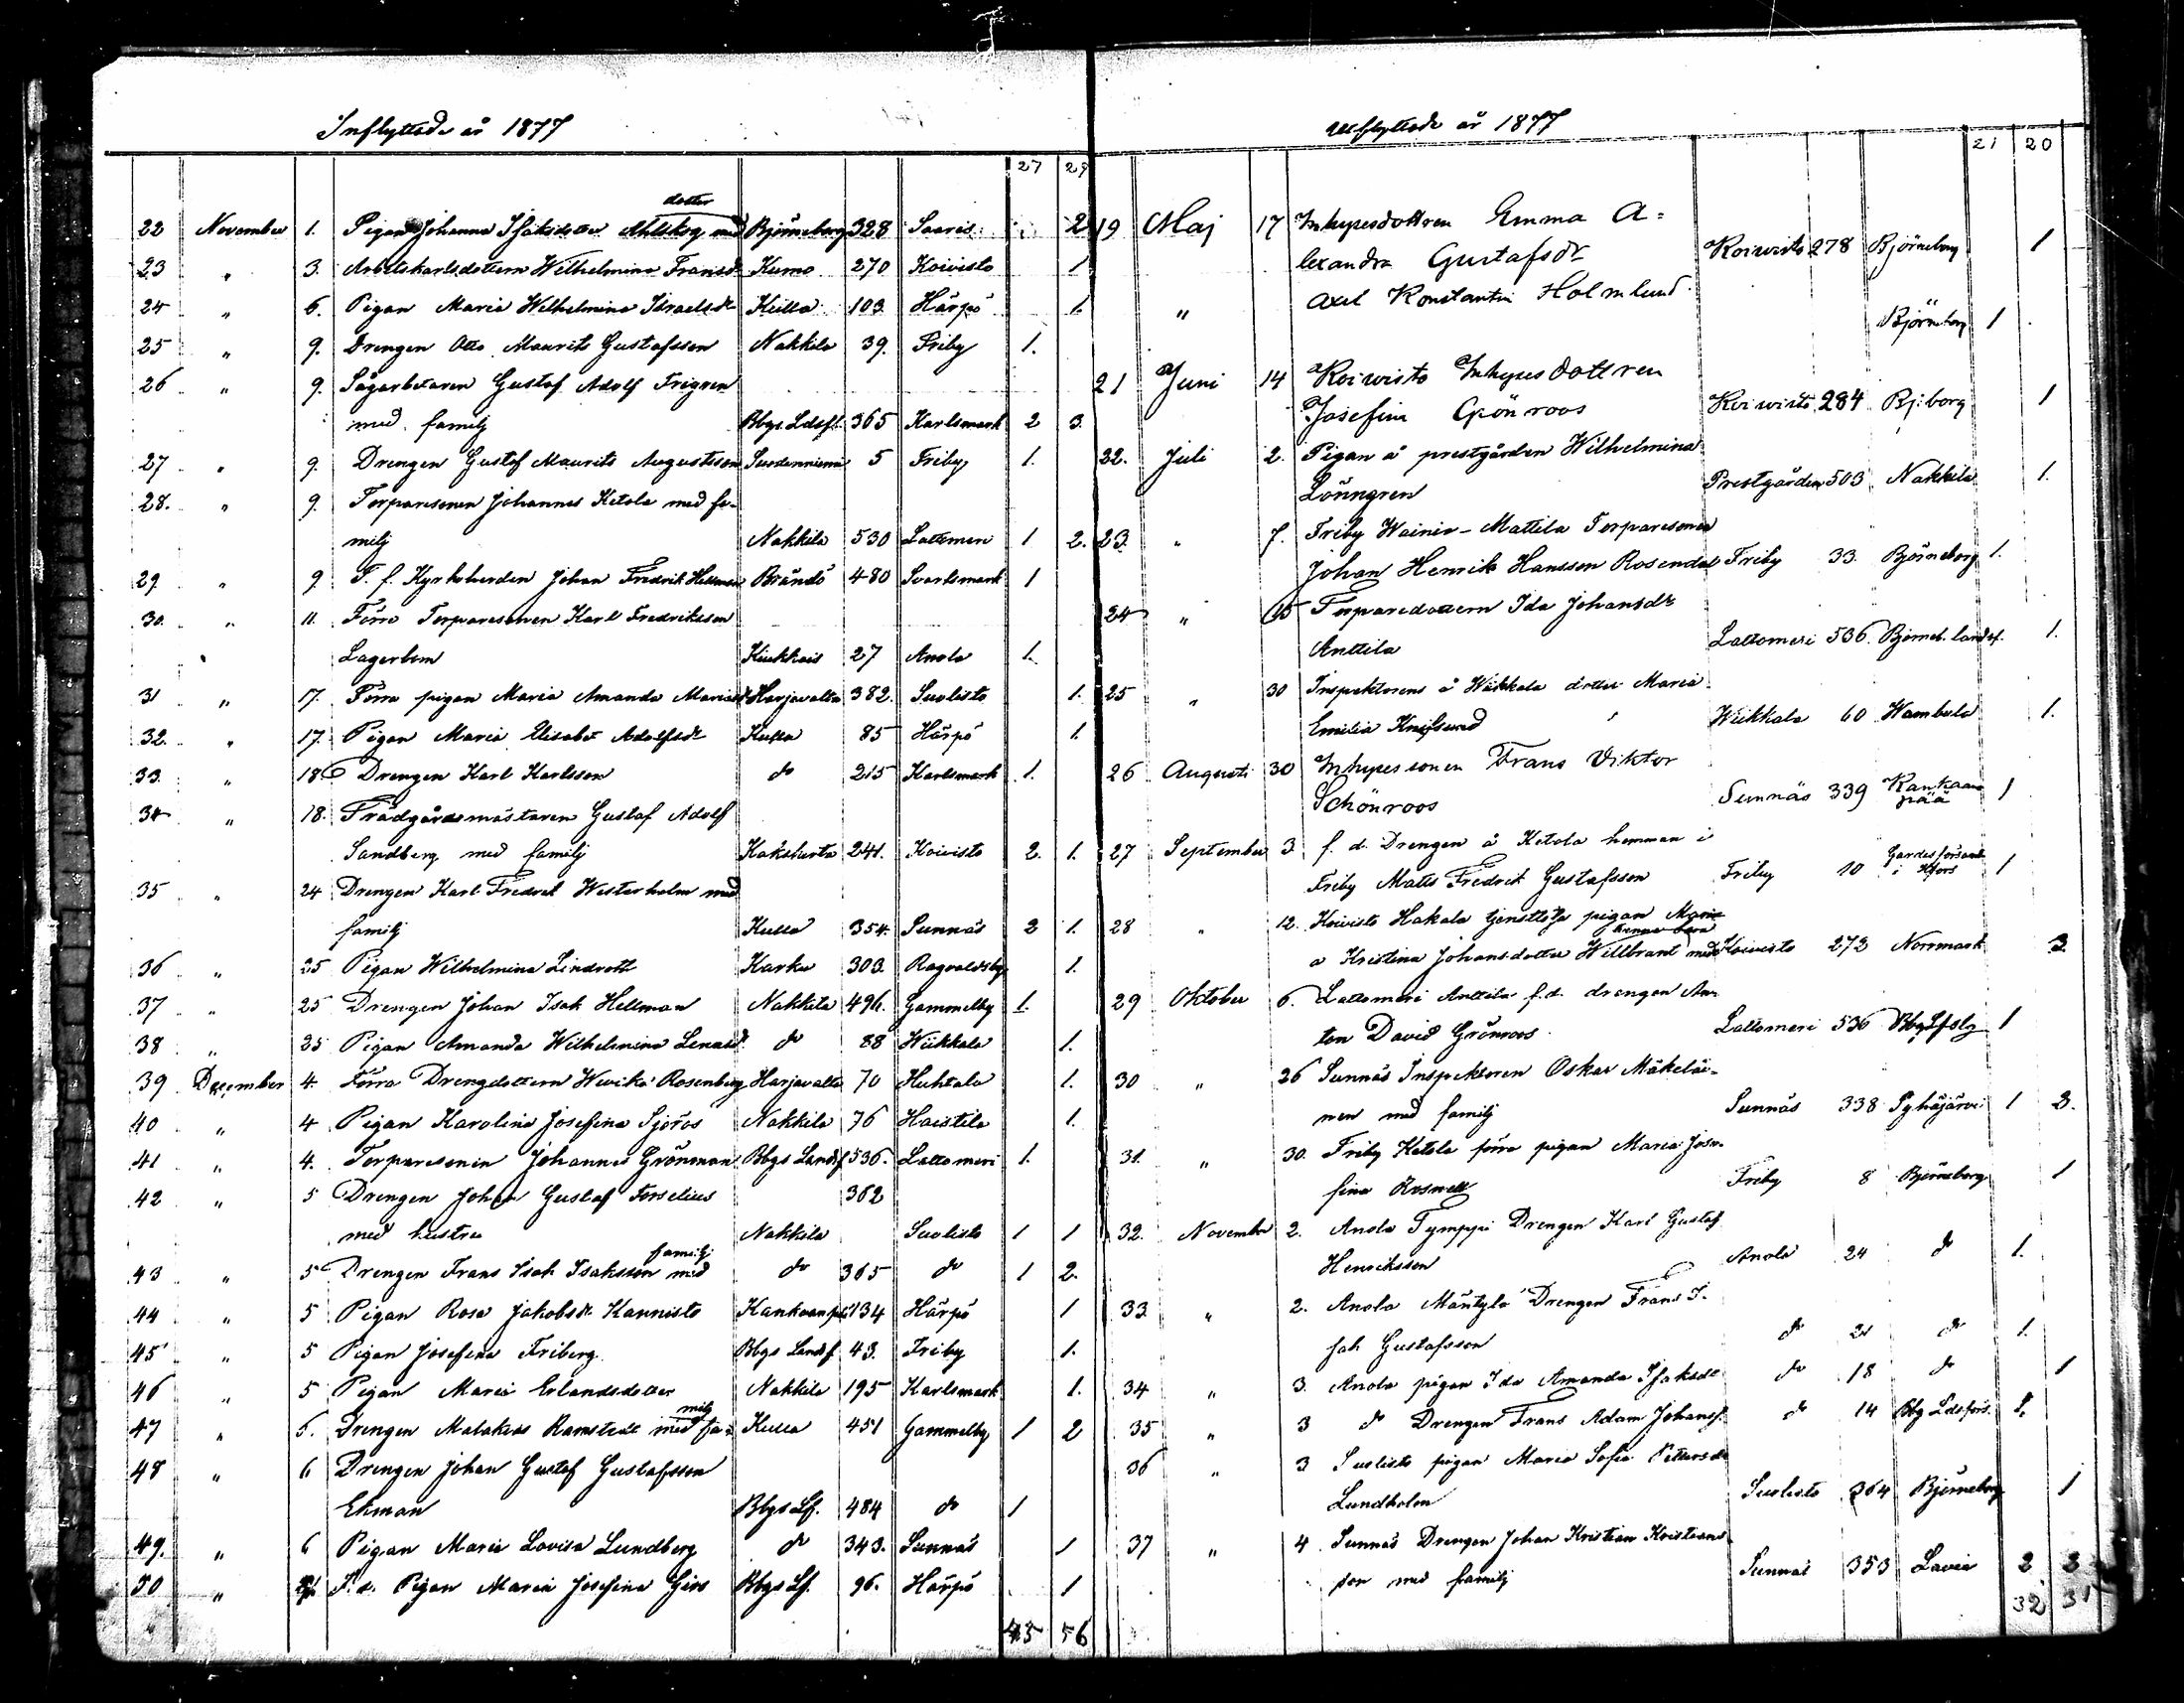 Inflyttade år 1877
27 29
dotter
22 November 1. Pigan Johanna Isaksdotter Ahlskog med Björneborg 328 Saaris 2
23 " 3. Arbetskarlsdottern Wilhelmina Fransdr Kumo 270 Koivisto 1
24 " 6. Pigan Maria Wilhelmina Israelsdr Kulla 103 Härpö 1.
25 " 9. Drengen Otto Maurits Gustafsson Nakkila 39. Friby 1.
26 " 9. Sågarbetaren Gustaf Adolf Frigren
med familj Bbgs. Ldsf. 365 Karlsmark 2 3.
27 " 9. Drengen Gustaf Maurits Augustsson Suodenniemi 5 Friby 1.
28. " 9. Torparesonen Johannes Ketola med fa-
milj Nakkila 530 Lattomeri 1 2.
29. " 9 T. f. Kyrkoherden Johan Fredrik Hellman Brändö 480 Svartsmark 1
30. " 11. Förra Torparesonen Karl Fredriksson
Lagerbom Kiukkais 27 Anola 1.
31 " 17. Förra pigan Maria Amanda Mariasdr Harjavalta 382. Suolisto 1.
32. " 17. Pigan Maria Elisabet Adolfsdr Kulla 85 Härpö 1.
33. " 18 Drengen Karl Karlsson do 215 Karlsmark 1.
34 " 18. Trädgårdsmästaren Gustaf Adolf
Sandberg med familj Kakskerta 241. Koivisto 2. 1.
35 " 24 Drengen Karl Fredrik Westerholm med
familj Kulla 354. Sunnäs 2 1.
36 " 25 Pigan Wilhelmina Lindroth Karku 303. Ragvaldsby 1.
37 " 25 Drengen Johan Isak Hellman Nakkila 496. Gammelby 1.
38 " 25 Pigan Amanda Wilhelmina Lenasdr do 88 Wiikkala 1.
39 December 4. Förra Drengdottern Wewika Rosenberg Harjavalta 70 Huhtala 1.
40 " 4 Pigan Karolina Josefina Sjöros Nakkila 76 Haistila 1.
41 " 4. Torparesonen Johannes Grönman Bbgs Landsf 536. Lattomeri 1.
42 " 5 Drengen Johan Gustaf Forselius 362
med hustru Nakkila Suolisto 1 1
familj
43 " 5 Drengen Frans Isak Isaksson med do 365 do 1 2.
44 " 5 Pigan Rosa Jakobsdr Kannisto Kankaanpää 134 Härpö 1
45 " 5 Pigan Josefina Friberg Bbgs Landsf 43. Friby 1.
46 " 5 Pigan Maria Erlandsdotter Nakkila 195 Karlsmark 1.
milj
47 " 5. Drengen Malakias Ramstedt med fa- Kulla 451 Gammelby 1 2
48 " 6 Drengen Johan Gustaf Gustafsson
Ekman Bbgs Lf. 484 do 1
49. " 6 Pigan Maria Lovisa Lundberg do 343. Sunnäs 1
50 " F. d. Pigan Maria Josefina Girs Bbgs Lf. 96. Härpö 1
45 56
Utflyttade år 1877
21 20
19 Maj 17 Inhysesdottren Emma A=
lexandra Gustafsdr Koiwisto 278 Björneborg 1
" Axel Konstantin Holmlund
Björneborg 1
21 Juni 14 Koiwisto Inhysesdottren
Josefina Grönroos Koiwisto 284 Bj:borg 1
22. Juli 2. Pigan å prestgården Wilhelmina
Lönngren Prestgården 503 Nakkila 1.
23. " 7. Friby Wainio-Mattila Torparesonen
Johan Henrik Hansson Rosendal Friby 33. Björneborg 1.
24 " 15 Torparedottern Ida Johansdr
Anttila Lattomeri 536. Björneb. landsf. 1.
25 " 30 Inspektorens å Wiikkala dotter Maria
Emilia Knifsund Wiikkala 60 Wambula 1.
26 Augusti 30 Inhysessonen Frans Viktor
Schönroos Sunnäs 339 Kankaan
pää 1
27 September 3 f. d. Drengen å Ketola hemman i
Friby Matts Fredrik Gustafsson Friby 10 Gardesförsaml
i Hfors 1
28 " 12. Koivisto Hakala tjenstfolks pigan Mari
a Kristina Johansdotter Willbrant med Koivisto 272 Norrmark 3.
29 Oktober 6. Lattomeri Anttila f. d. drengen An
ton David Grönroos Lattomeri 536 Bbgs Lfslg 1
30 " 26 Sunnäs Inspektoren Oskar Mäkeläi-
nen med familj Sunnäs 338 Pyhäjärvi 1 3.
31. " 30. Friby Ketola förra pigan Maria Jose-
fina Rosnell Friby 8 Björneborg 1
32. November 2. Anola Tymppi Drengen Karl Gustaf
Henriksson Anola 24 do 1.
33 " 2. Anola Mäntylä Drengen Frans I-
sak Gustafsson do 21 do 1.
34 " 3. Anola pigan Ida Amanda Isaksdr do 18 do 1
35 " 3 do Drengen Frans Adam Johanss. do 14 Bbg Ldsförs. 1.
36 " 3 Suolisto pigan Maria Sofia Petersdr
Lundholm Suolisto 364 Björneborg 1
37 " 4 Sunnäs Drengen Johan Kristian Kristians
son med familj Sunnäs 353 Lavia 2 3
32 31